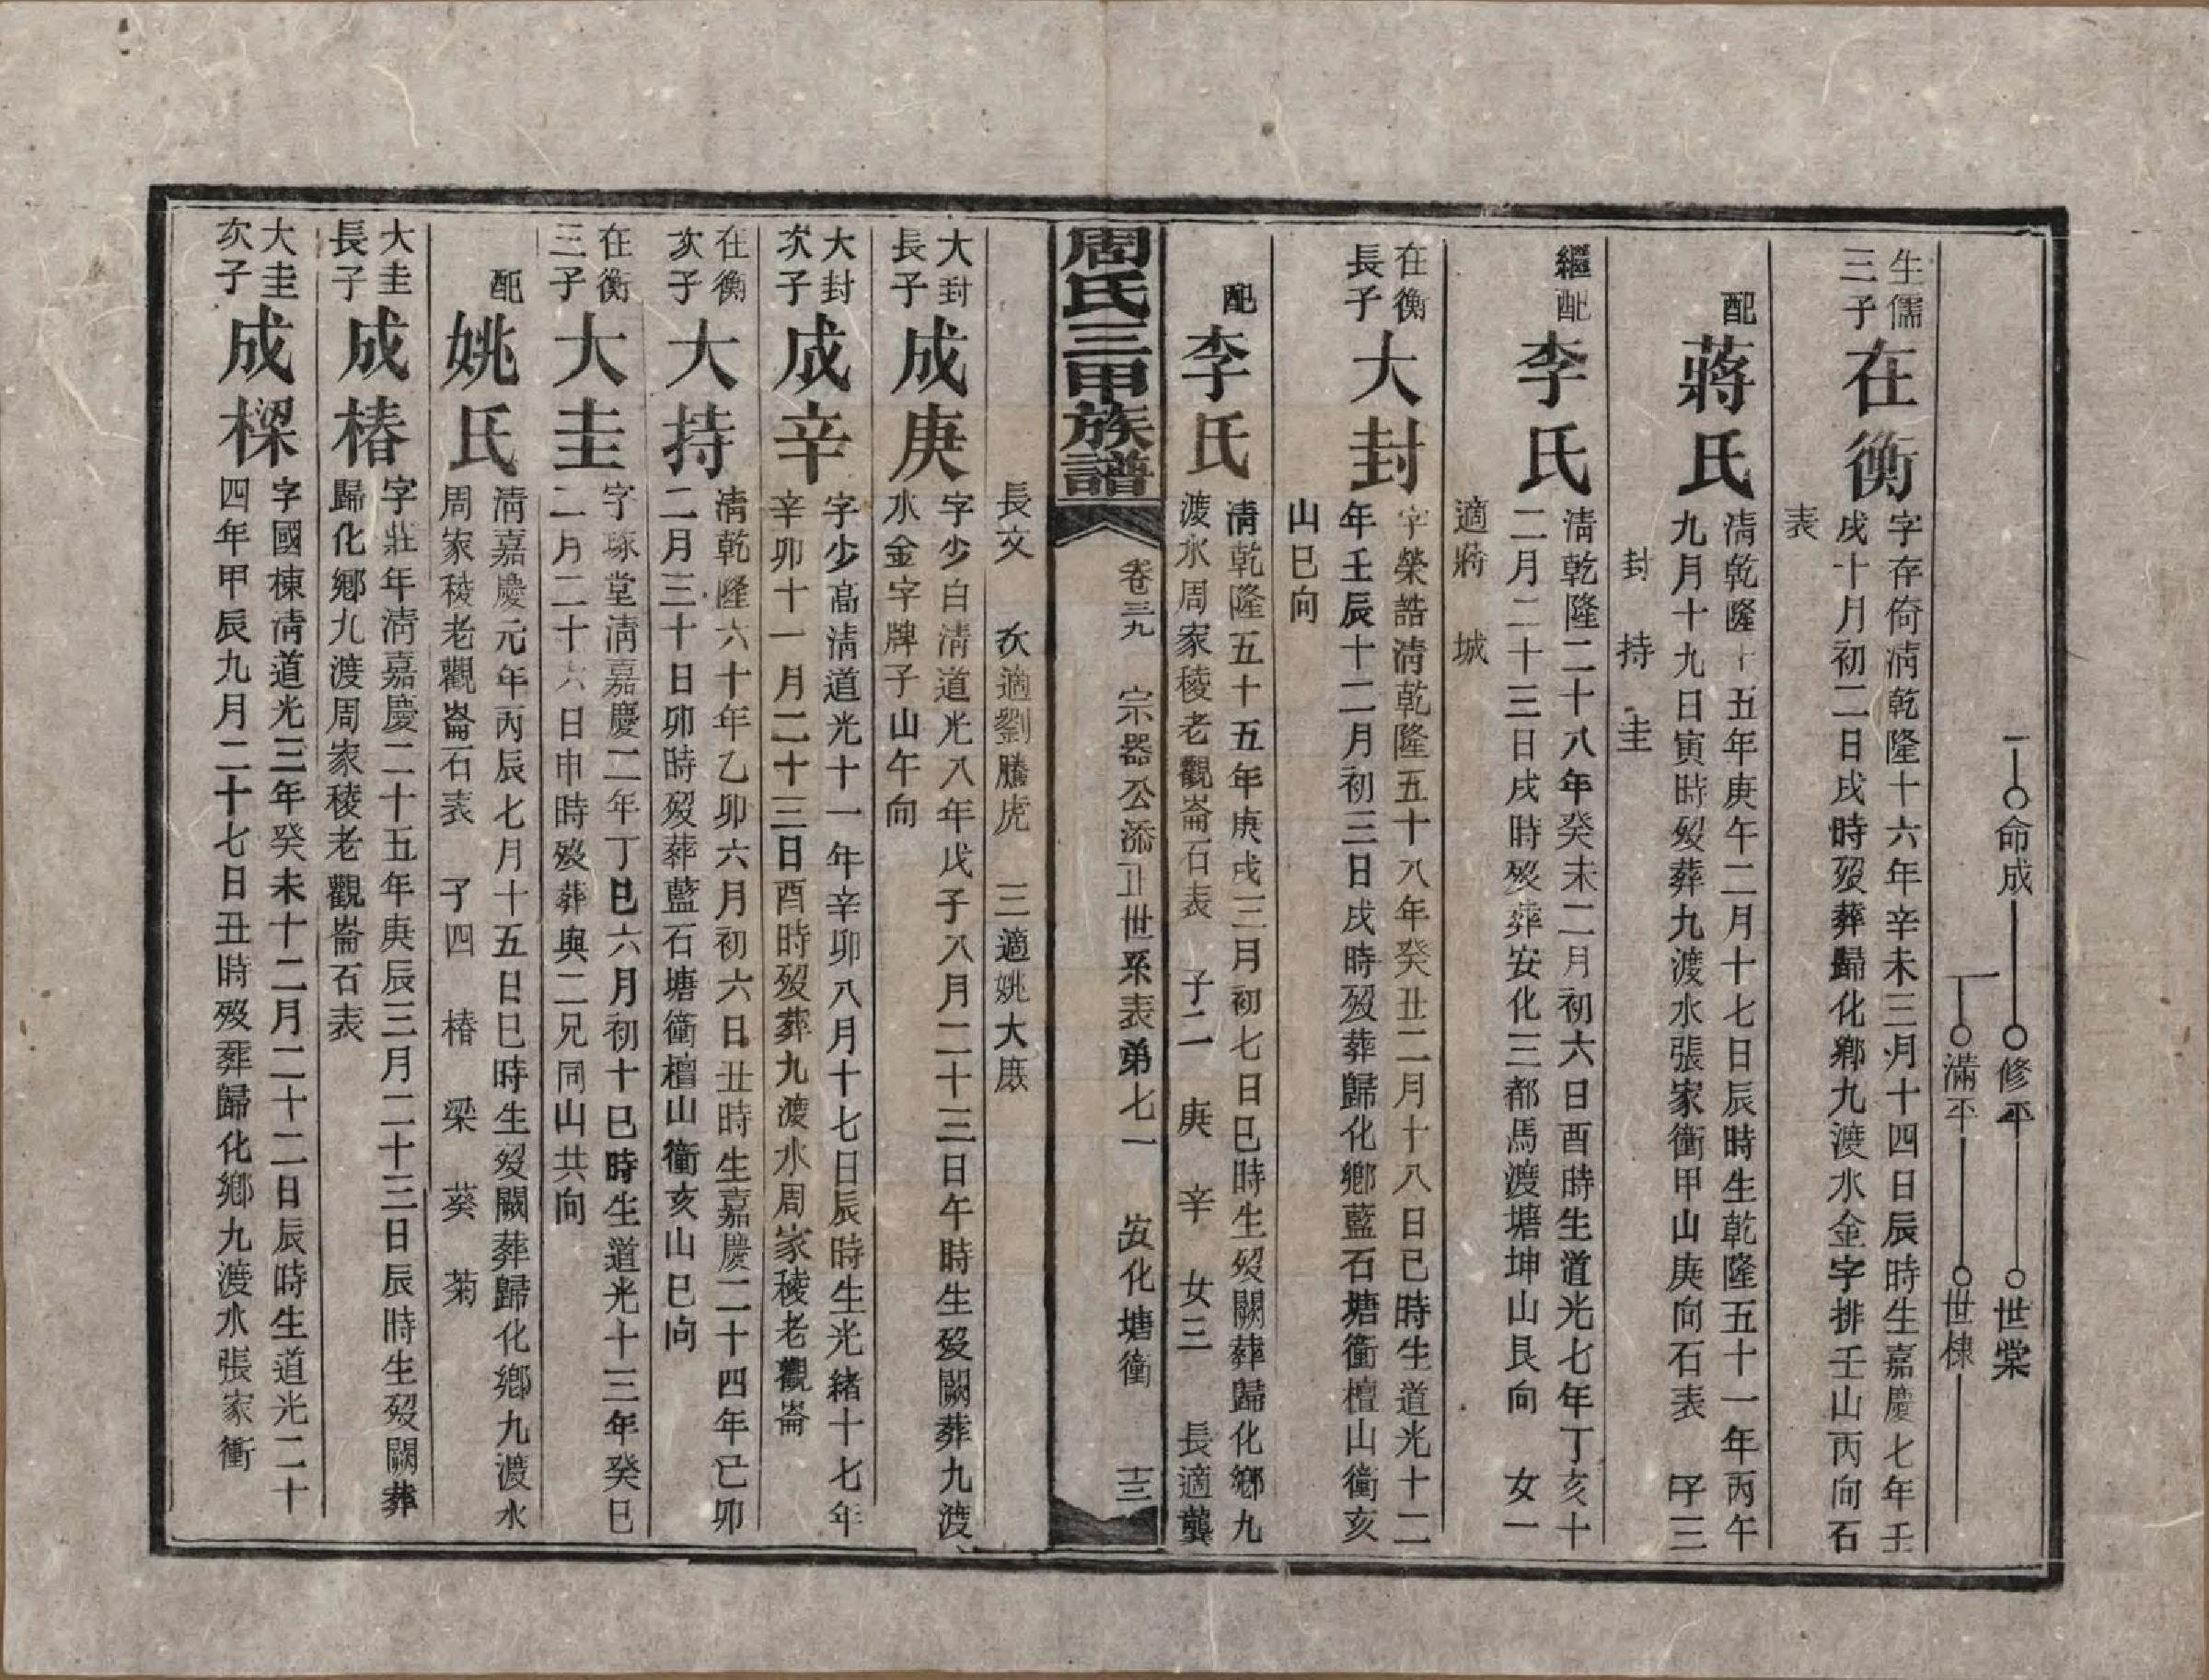 命成
修平
世棠
滿平
世棣
生儒
三子
在衡
字存倚淸乾隆十六年辛未三月十四日辰時生嘉慶七年壬
戌十月初二日戌時歿葬歸化鄕九渡水金字排壬山丙向石
表
配
蔣氏
淸乾隆十五年庚午二月十七日辰時生乾隆五十一年丙午
九月十九日寅時歿葬九渡水張家衝甲山庚向石表 子三
封 持 圭
繼配
李氏
淸乾隆二十八年癸未二月初六日酉時生道光七年丁亥十
二月二十三日戌時歿葬安化三都馬渡塘坤山艮向 女一
適蔣 城
在衡
長子
大封
字榮誥淸乾隆五十八年癸丑二月十八日巳時生道光十二
年壬辰十二月初三日戌時歿葬歸化鄕藍石塘衝檀山衝亥
山巳向
配
李氏
淸乾隆五十五年庚戌三月初七日巳時生歿闕葬歸化鄕九
渡水周家稜老觀崙石表 子二 庚 辛 女三 長適龔
周氏三甲族譜
卷三九 宗器公添正世系表弟七一 安化塘衝 十三
長文 次適劉騰虎 三適姚大廐
大封
長子
成庚
字少白淸道光八年戊子八月二十三日午時生歿闕葬九渡
水金字牌子山午向
大封
次子
成辛
字少高淸道光十一年辛卯八月十七日辰時生光緒十七年
辛卯十一月二十三日酉時歿葬九渡水周家稜老觀崙
在衡
次子
大持
淸乾隆六十年乙卯六月初六日丑時生嘉慶二十四年己卯
二月三十日卯時歿葬藍石塘衝檀山衝亥山巳向
在衡
三子
大圭
字琢堂淸嘉慶二年丁巳六月初十巳時生道光十三年癸巳
二月二十六日申時歿葬與二兄同山共向
配
姚氏
淸嘉慶元年丙辰七月十五日巳時生歿闕葬歸化鄕九渡水
周家稜老觀崙石表 子四 椿 梁 葵 菊
大圭
長子
成椿
字莊年淸嘉慶二十五年庚辰三月二十三日辰時生歿闕葬
歸化鄕九渡周家稜老觀崙石表
大圭
次子
成樑
字國棟淸道光三年癸未十二月二十二日辰時生道光二十
四年甲辰九月二十七日丑時歿葬歸化鄕九渡水張家衝